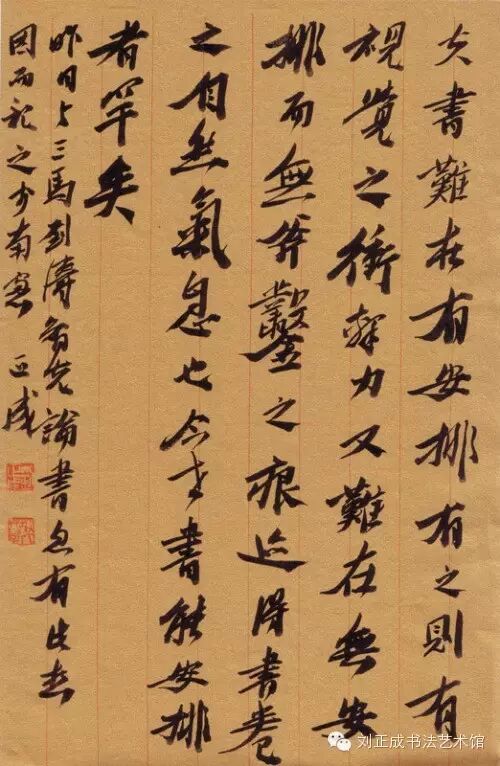 夫書難在有安排有之則有
視覺之衝擊力又難在無安
排而無斧鑿之痕迹得書卷
之自然氣息也今之書能安排
者罕矣
昨日與三馬劉濤有先論書忽有此意
因而記之於南窗 正成
刘正成书法艺术馆